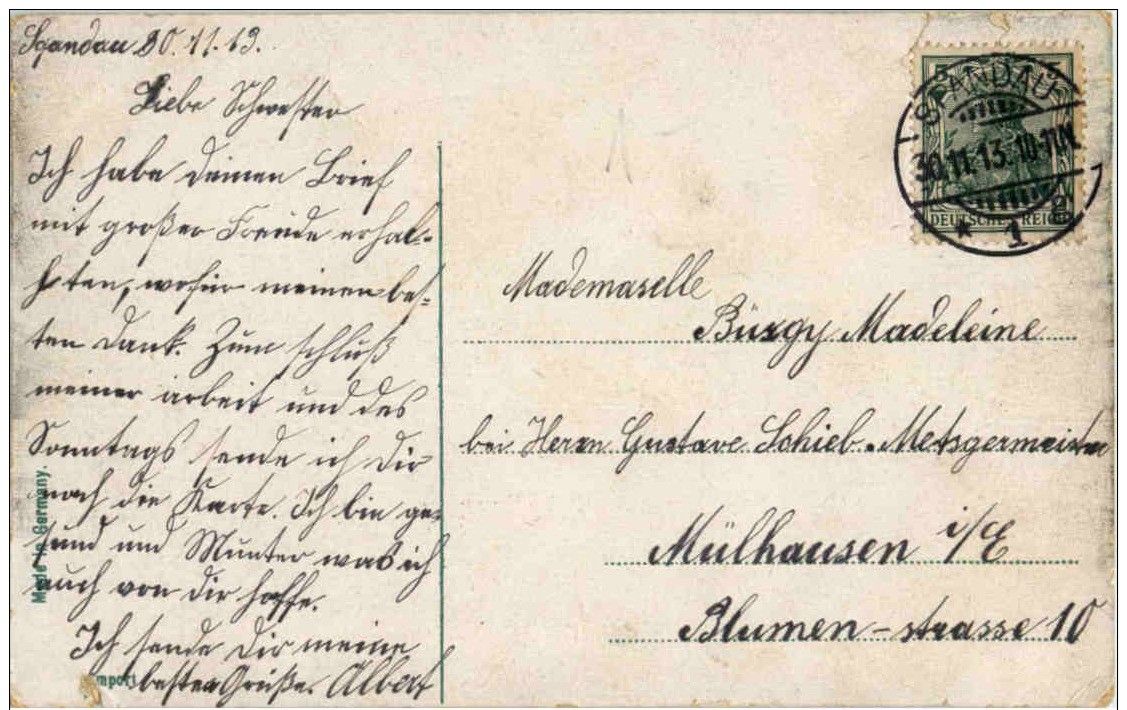 Spandau 30.11.13.
Liebe Schwester
Ich habe deinen Brief
mit großer Freude erhal-
ten, wofür meinen bes-
ten Dank. Zum schluß
meiner arbeit und des
Sonntags sende ich Dir
noch die Karte. Ich bin ge-
sund und Munter was ich
auch von dir hoffe.
Ich sende Dir meine
besten Grüße. Albert
Made in Germany.
Import
5 5
SPANDAU
30.11.13. 10-11N
DEUTSCHES REICH
* 1 g
Mademaselle
Büsgy Madeleine
bei Herrn Gustave Schieb-Metsgermeister
Mülhausen i/E
Blumen-strasse 10